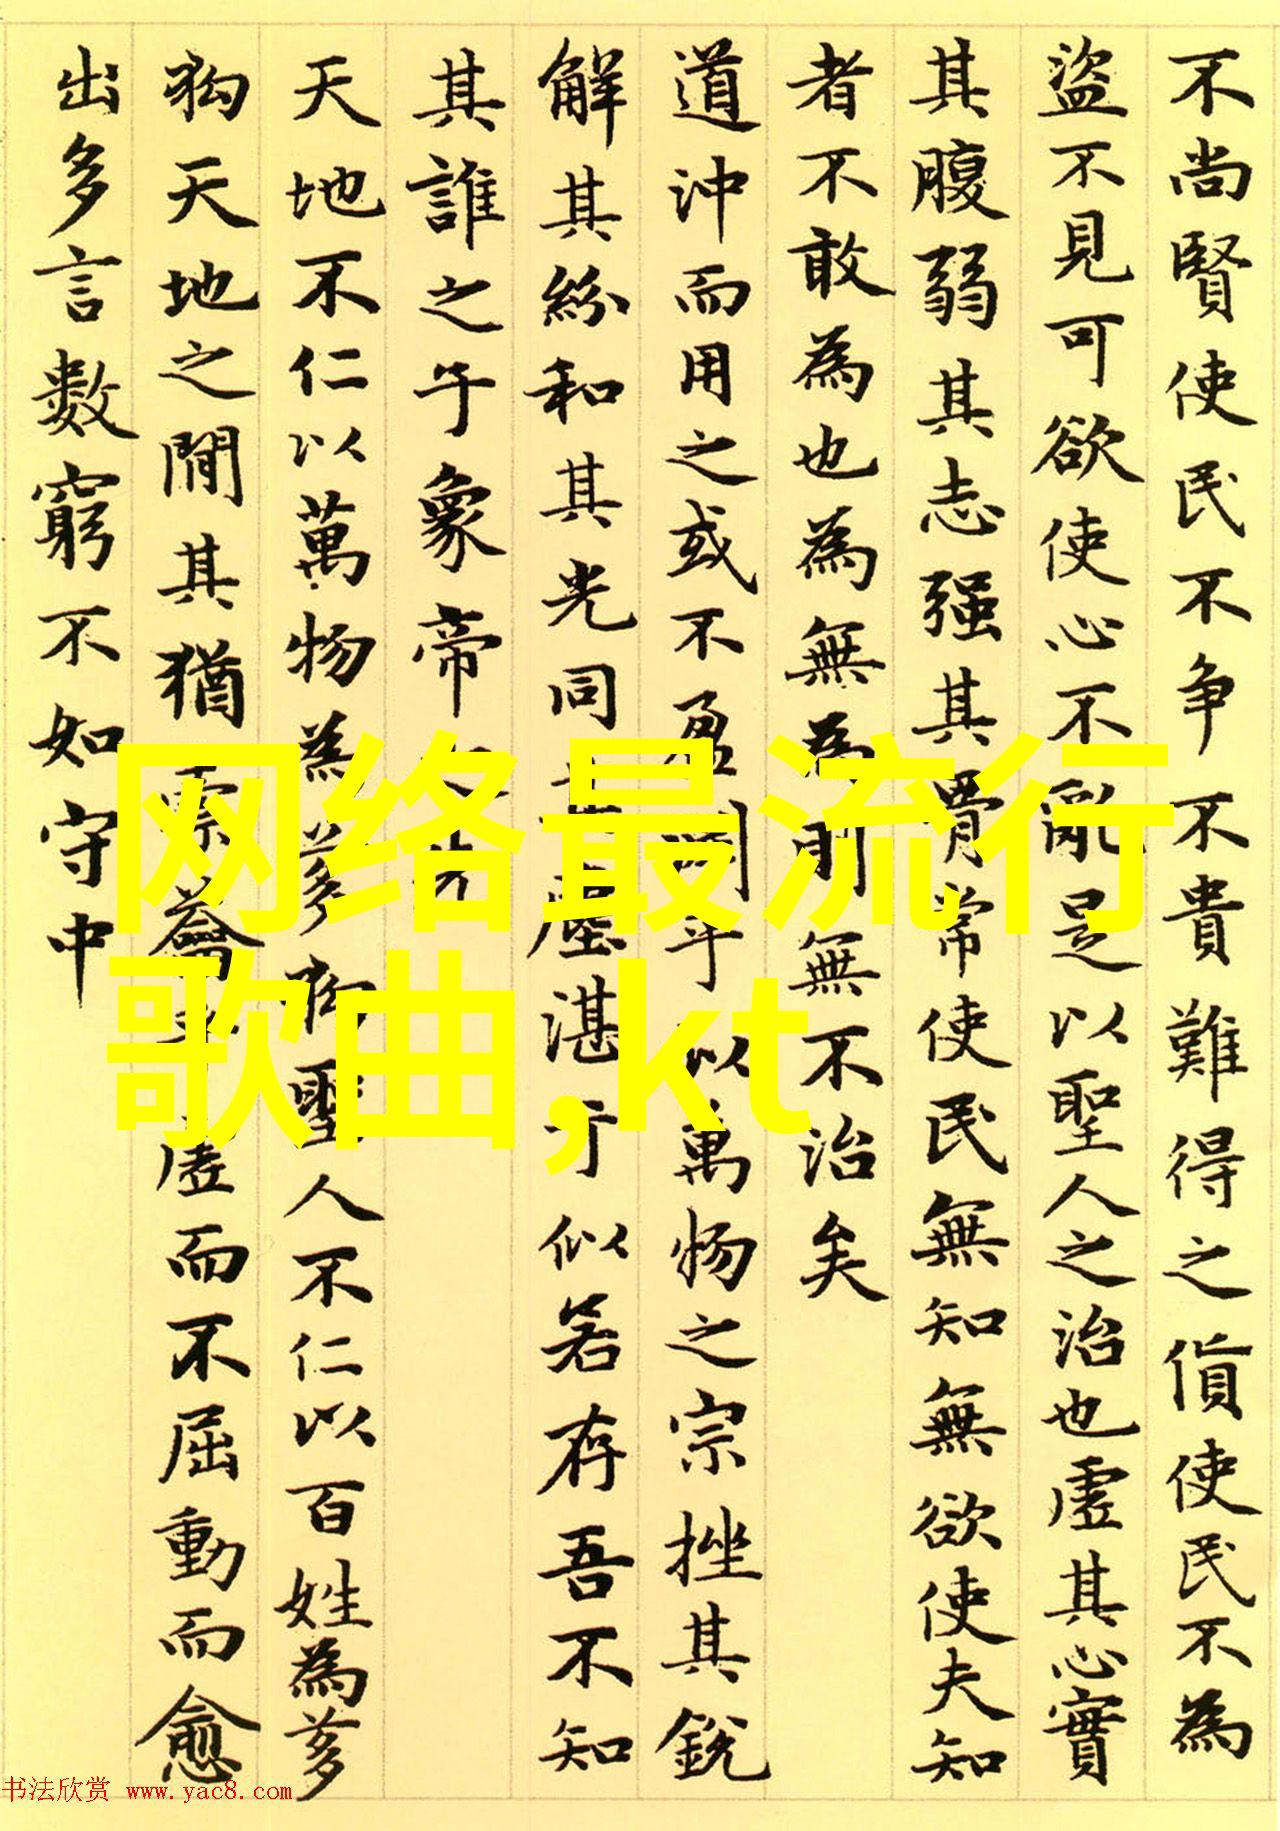 不尚賢使民不争不貴難得之貨使民不為
盜不見可欲使心不亂是以聖人之治也虛其心實
其腹弱其志强其骨常使民無知無欲使夫知
者不敢為也為無為則無不治矣
道沖而用之或不盈淵乎以萬物之宗挫其銳
解其紛和其光同其塵湛兮似若存吾不知
其誰之子象帝之先
天地不仁以萬物為芻狗聖人不仁以百姓為芻
狗天地之間其猶橐籥乎虛而不屈動而愈
出多言數窮不如守中
网络最流行
歌曲,kt
书法欣赏 www.yac8.com